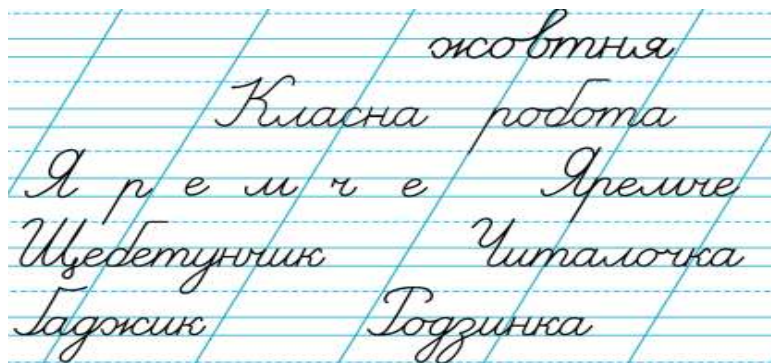 жовтня
Класна робота
Я р е м ч е Яремче
Щебетунчик Читалочка
Ґаджик Родзинка